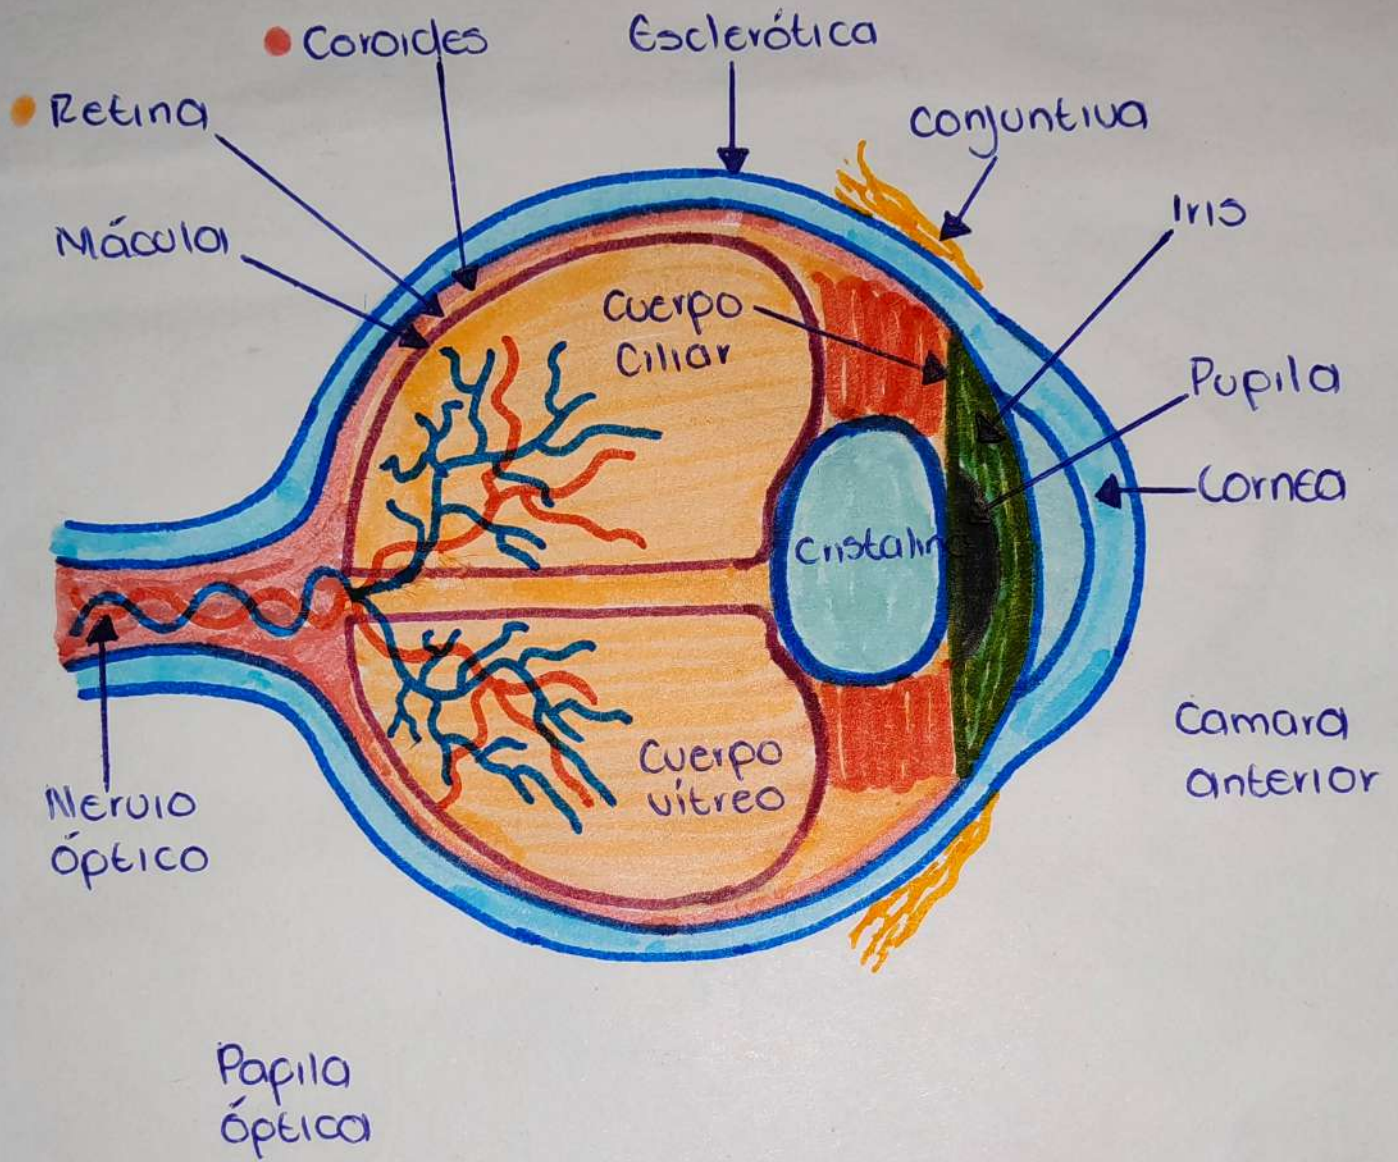 Coroides
Esclerótica
Retina
Conjuntiva
Mácula
Iris
Cuerpo
Ciliar
Pupila
Cornea
Cristalino
Camara
anterior
Cuerpo
vítreo
Nervio
óptico
Papila
óptica